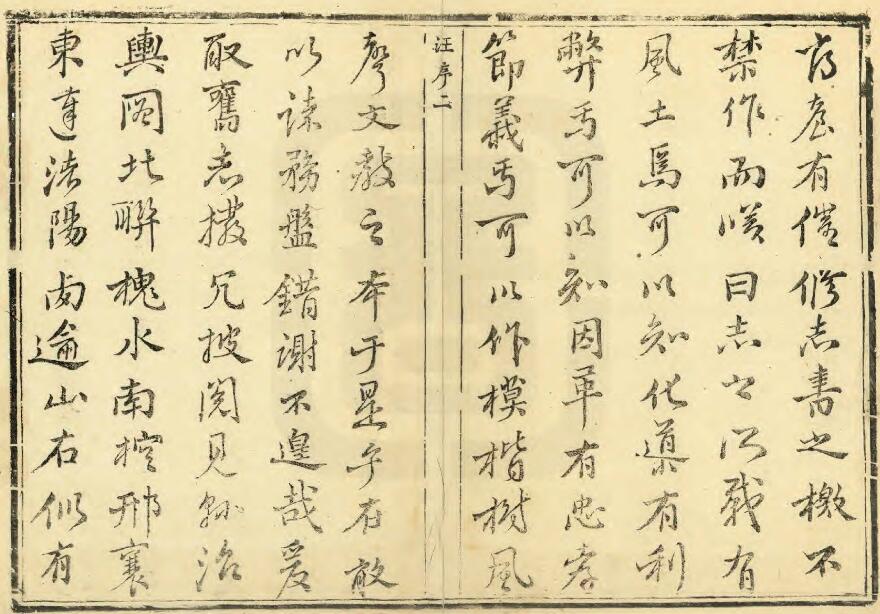 有催修志書之檄不
禁作而嘆曰志之所載有
風土焉可以知化導有利
弊焉可以知因革有忠孝
節義焉可以作模楷樹風
汪序二
聲文教之本于是乎在敢
以務盤錯謝不遑哉爰
取舊志撥冗披閱見縣治
輿圖北聯槐水南控邢襄
東陽西逾山右似有